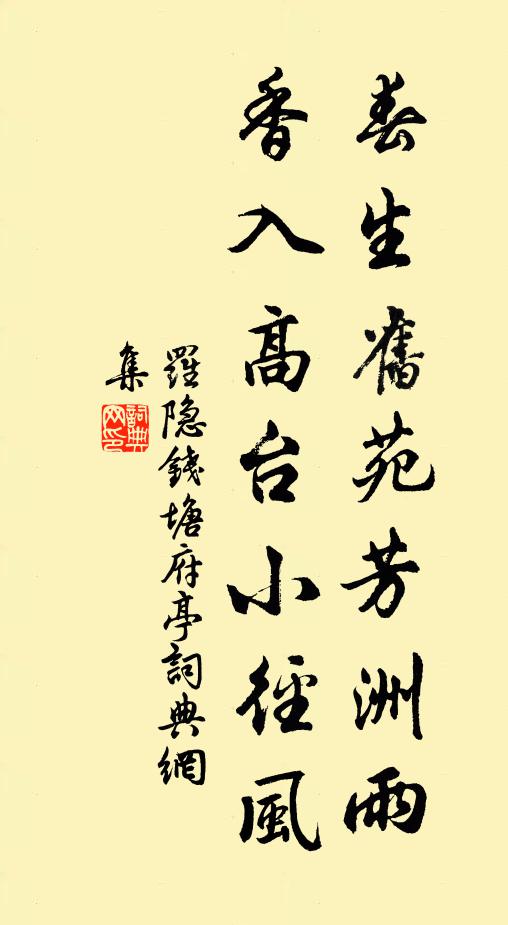 春生舊苑芳洲雨
香入高台小徑風
羅隐錢塘府亭詞典網
集
詞典
网印